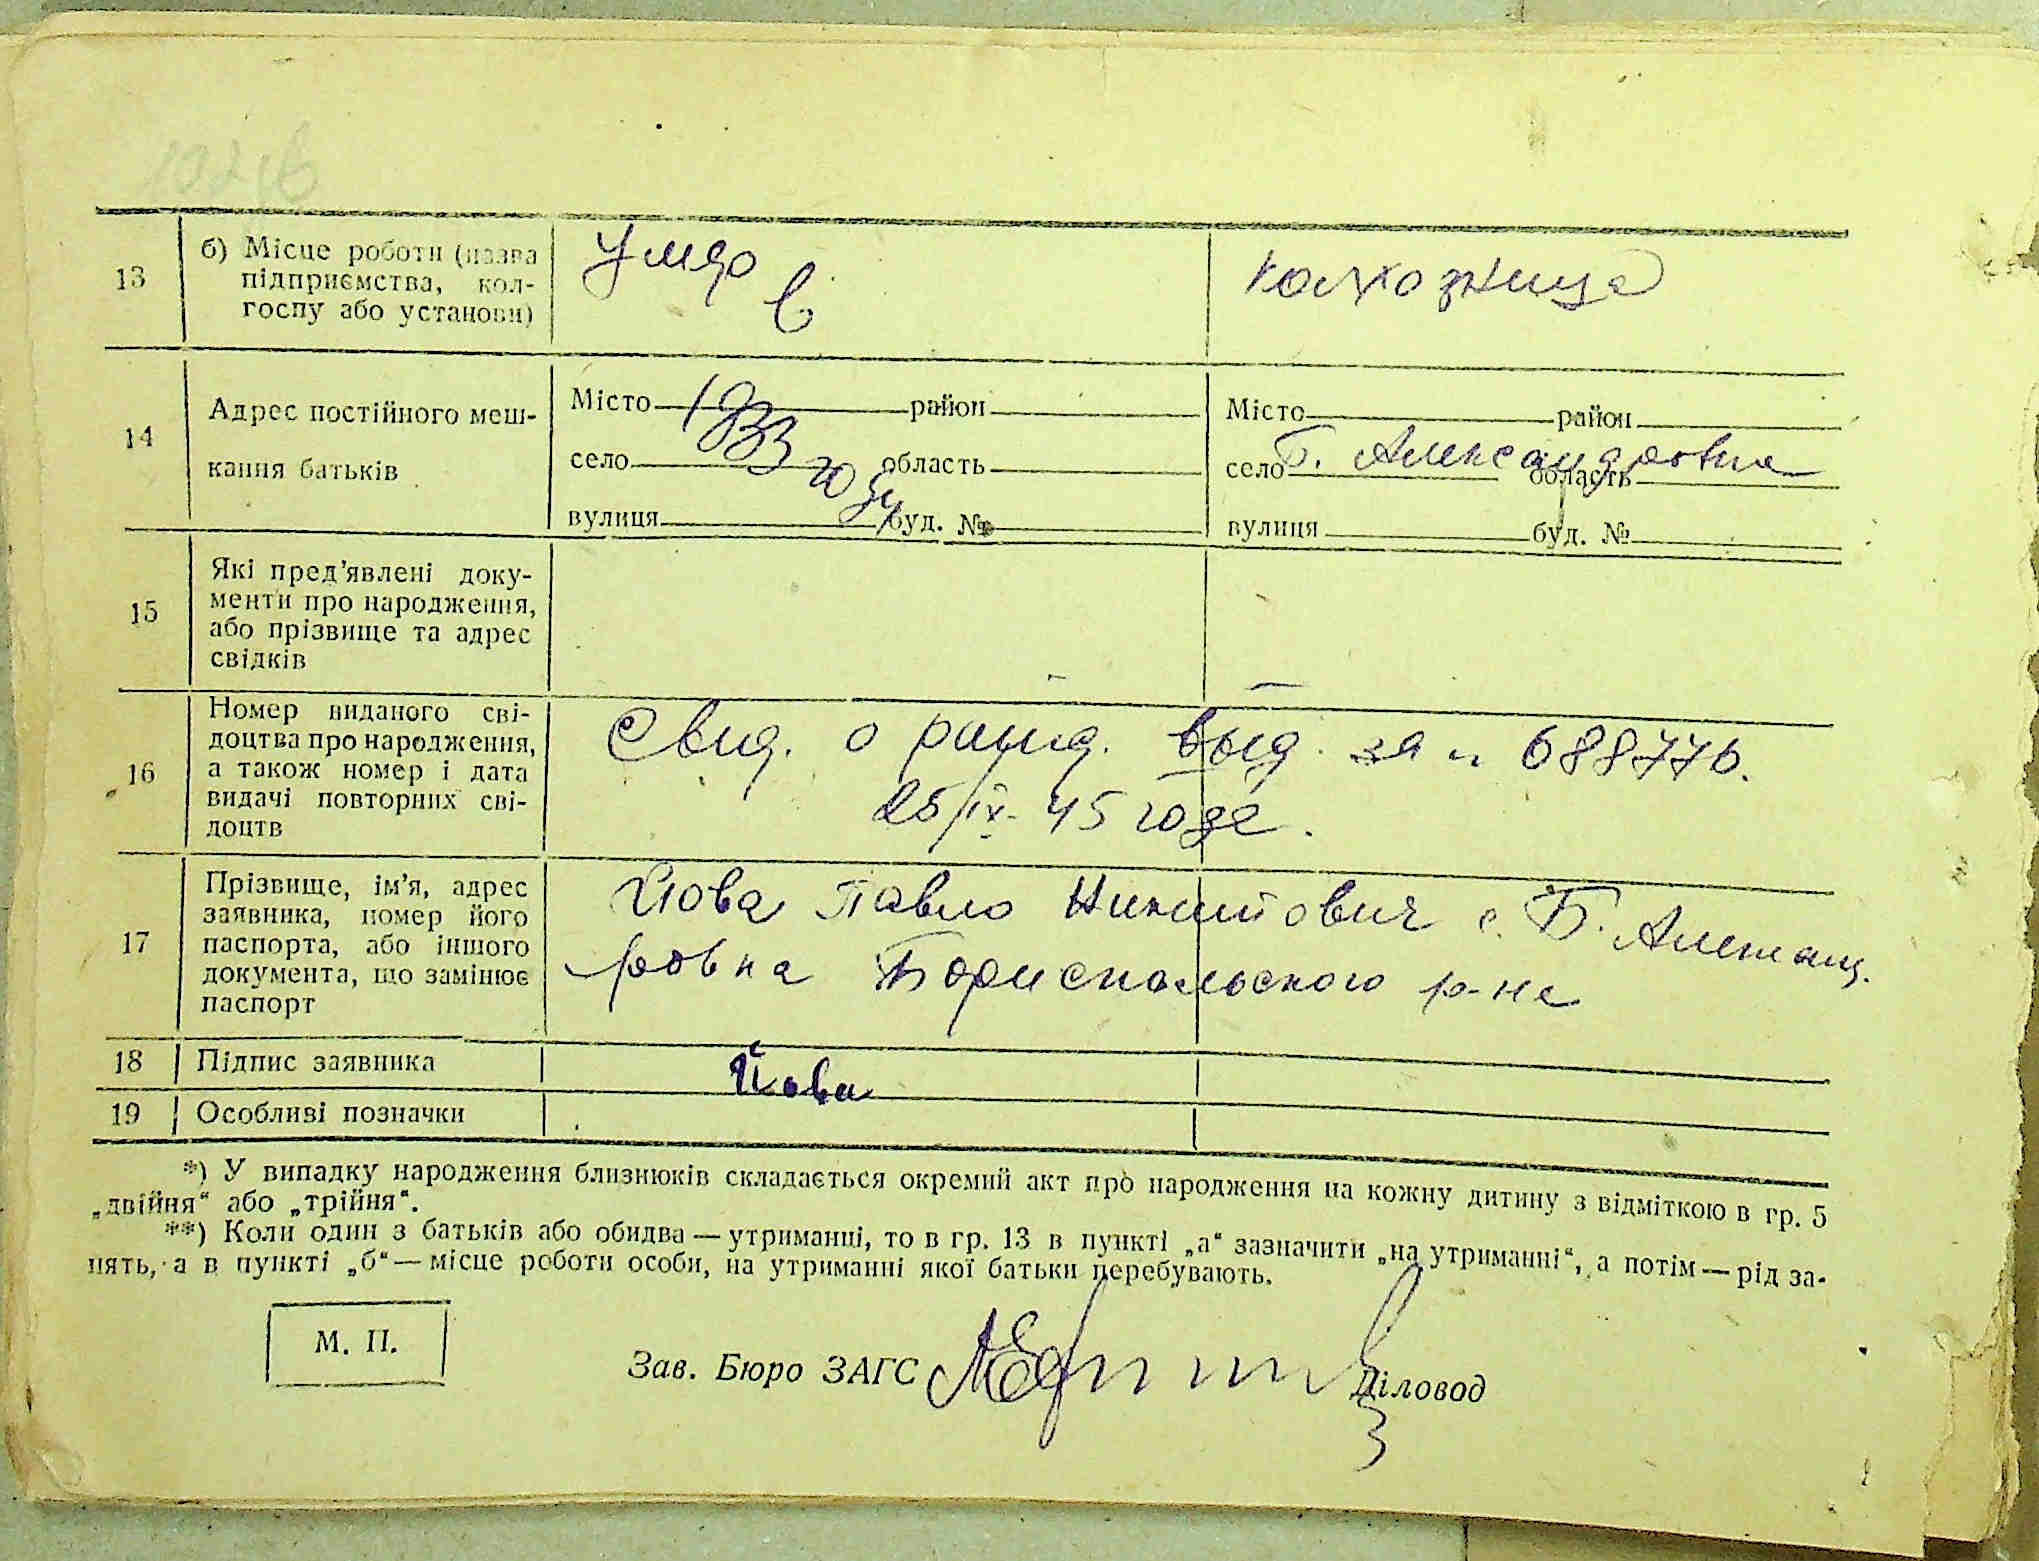 13 б) Місце роботи (назва підприємства, колгоспу або установи) Умер в колхозница
14 Адрес постійного мешкання батьків
Місто 1933 район Місто район
село году область село Б. Александровка область
вулиця буд. № вулиця буд. №
15 Які пред'явлені документи про народження, або прізвище та адрес свідків
16 Номер виданого свідоцтва про народження, а також номер і дата видачі повторних свідоцтв
Свид. о рожд. выд. за н 688776.
25/IX-45 года.
17 Прізвище, ім'я, адрес заявника, номер його паспорта, або іншого документа, що замінює паспорт
Йова Павло Никитович с. Б. Александ.
ровка Бориспольского р-на
18 Підпис заявника Йова
19 Особливі позначки
*) У випадку народження близнюків складається окремий акт про народження на кожну дитину з відміткою в гр. 5
„двійня“ або „трійня“.
**) Коли один з батьків або обидва — утриманці, то в гр. 13 в пункті „а“ зазначити „на утриманні“, а потім — рід за-
нять, а в пункті „б“ — місце роботи особи, на утриманні якої батьки перебувають.
М. П.
Зав. Бюро ЗАГС Діловод